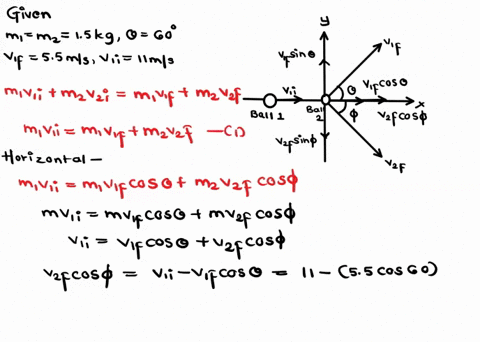 Given
m₁ = m₂ = 1.5kg, θ = 60°
v₁f = 5.5m/s, v₁i = 11m/s
m₁v₁i + m₂v₂i = m₁v₁f + m₂v₂f
m₁v₁i = m₁v₁f + m₂v₂f —(1)
Horizontal —
m₁v₁i = m₁v₁f cosθ + m₂v₂f cosϕ
mv₁i = mv₁f cosθ + mv₂f cosϕ
v₁i = v₁f cosθ + v₂f cosϕ
v₂f cosϕ = v₁i − v₁f cosθ = 11 − (5.5 cos60)
y
v₁f
vf sinθ
v₁f cosθ
v₁i
θ
x
Ball 1
Ball 2
ϕ
v₂f cosϕ
v₂f sinϕ
v₂f